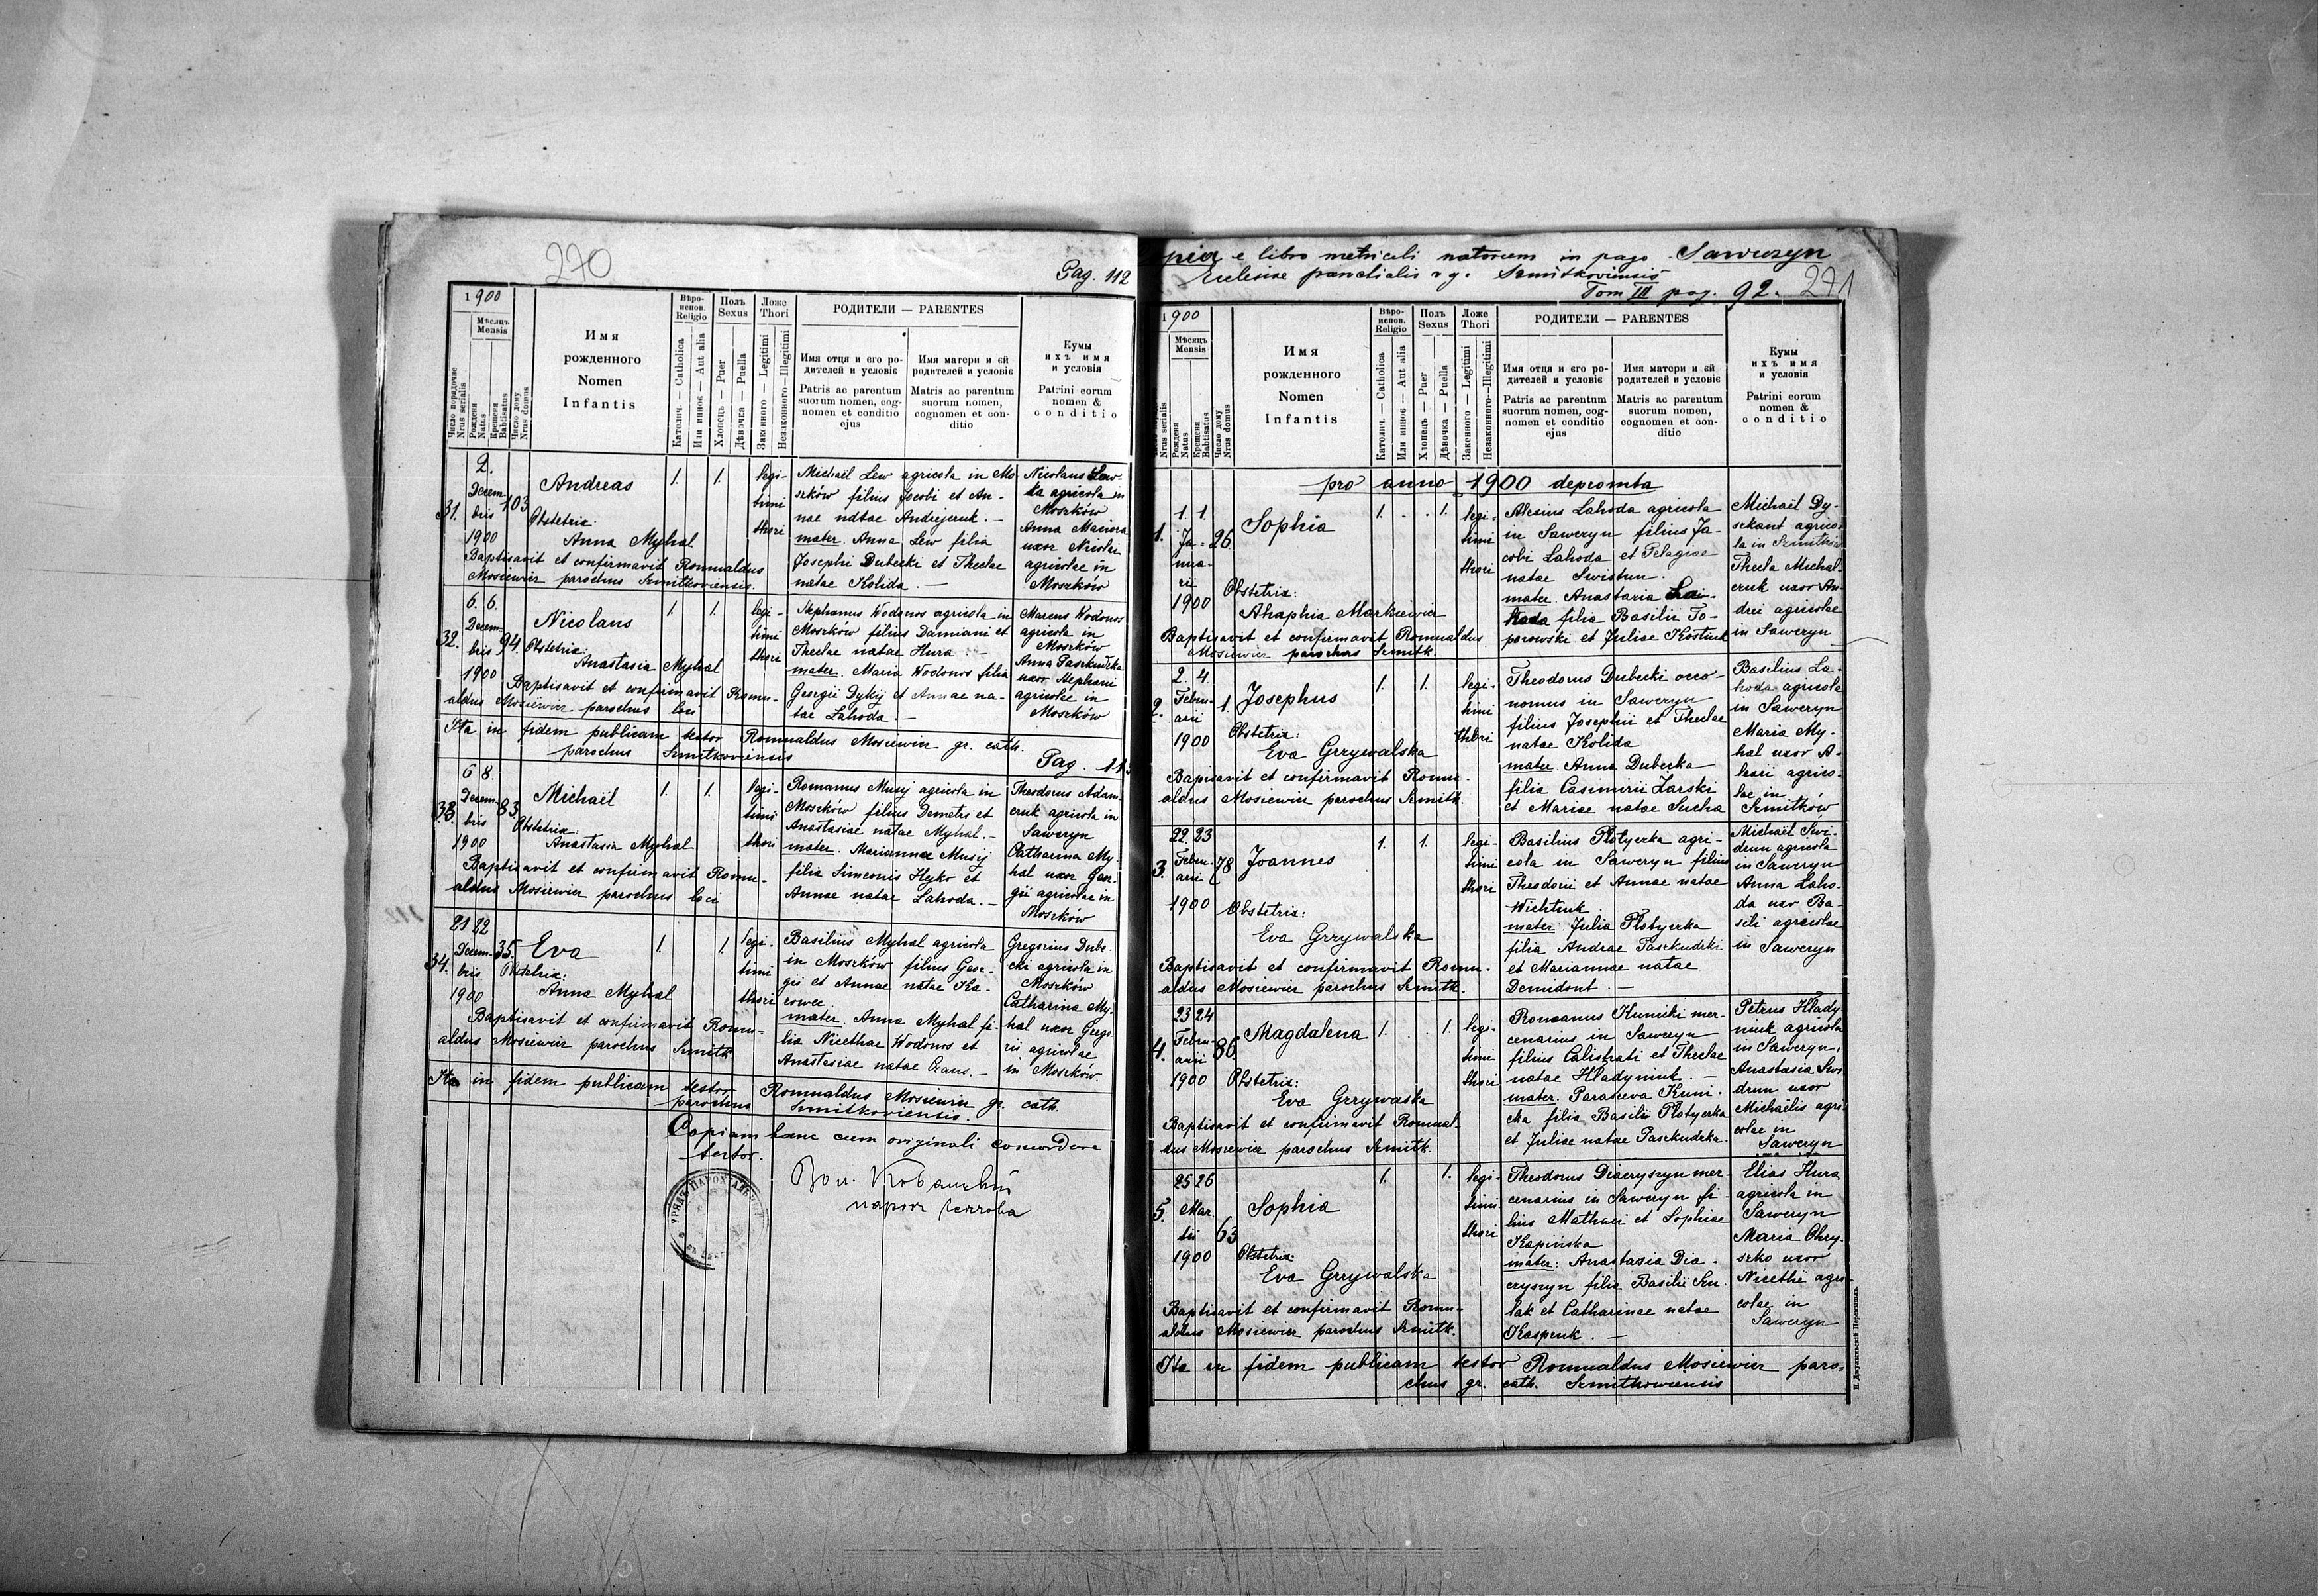 270
Pag. 112
1900
Мѣсяцъ
Mensis
Число порядочне
Nrus serialis
Рождена
Natus
Крещена
Babtisatus
Число дому
Nrus domus
Имя
рожденного
Nomen
Infantis
Вѣро-
испов.
Religio
Католич. — Catholica
Или инноє — Aut alia
Полъ
Sexus
Хлопецъ — Puer
Дѣвочка — Puella
Ложе
Thori
Законного — Legitimi
Незаконного — Illegitimi
РОДИТЕЛИ — PARENTES
Имя отця и єго ро-
дителей и условіє
Patris ac parentum
suorum nomen, cog-
nomen et conditio
ejus
Имя матери и єй
родителей и условіє
Matris ac parentum
suorum nomen,
cognomen et con-
ditio
Кумы
ихъ имя
и условія
Patrini eorum
nomen &
conditio
31.
2.
Decem-
bris
1900
103
Andreas
Obstetrix:
Anna Myhal
Baptisavit et confirmavit Romualdus
Mosiewicz parochus Szmitkoviensis.
1.
1.
legi-
timi
thori
Michaël Lew agricola in Mo-
szków filius Jacobi et An-
nae natae Andrejczuk. —
mater. Anna Lew filia
Josephi Dubecki et Theclae
natae Kolida. —
Nicolaus
agricola in
Moszków
Anna Maciura
uxor Nicolai
agricolae in
Moszków
32.
6. 6.
Decem-
bris
1900
94.
Nicolaus
Obstetrix:
Anastasia Myhal
Baptisavit et confirmavit Romu-
aldus Mosiewicz parochus loci
1.
1.
legi-
timi
thori
Stephanus Wodonos agricola in
Moszków filius Damiani et
Theclae natae Hura. —
mater. Maria Wodonos filia
Georgii Dykij et Annae na-
tae Lahoda. —
Marcus Wodonos
agricola in
Moszków
Anna Paszkudzka
uxor Stephani
agricolae in
Moszków
Ita in fidem publicam testor Romualdus Mosiewicz gr. cath.
parochus Szmitkoviensis
Pag. 11
33.
6 8.
Decem-
bris
1900
83.
Michaël
Obstetrix:
Anastasia Myhal
Baptisavit et confirmavit Romu-
aldus Mosiewicz parochus loci
1.
1.
legi-
timi
thori
Romanus Musij agricola in
Moszków filius Demetri et
Anastasiae natae Myhal. —
mater. Marianna Musij
filia Simeonis Hyko et
Annae natae Lahoda. —
Theodorus Adam-
czuk agricola in
Saweryn
Catharina My-
hal uxor Geor-
gii agricolae in
Moszków
34.
21 22
Decem-
bris
1900
35.
Eva
Obstetrix:
Anna Myhal
Baptisavit et confirmavit Romu-
aldus Mosiewicz parochus Szmitk.
1.
1.
legi-
timi
thori
Basilius Myhal agricola
in Moszków filius Geor-
gii et Annae natae Ka-
rowec.
mater. Anna Myhal fi-
lia Nicethae Wodonos et
Anastasiae natae Czaus. —
Gregorius Dube-
cki agricola in
Moszków
Catharina My-
hal uxor Grego-
rii agricolae
in Moszków.
Ita in fidem publicam testor Romualdus Mosiewicz gr. cath.
parochus Szmitkoviensis.
Copiam hanc cum originali concordare
testor.
271
e libro metricali natorum in pago Sawczyn
Ecclesiae parochialis r. g. Szmitkoviensis
Tom III pag. 92.
1900
Мѣсяцъ
Mensis
Nrus serialis
Рождена
Natus
Крещена
Babtisatus
Число дому
Nrus domus
Имя
рожденного
Nomen
Infantis
Вѣро-
испов.
Religio
Католич. — Catholica
Или инноє — Aut alia
Полъ
Sexus
Хлопецъ — Puer
Дѣвочка — Puella
Ложе
Thori
Законного — Legitimi
Незаконного — Illegitimi
РОДИТЕЛИ — PARENTES
Имя отця и єго ро-
дителей и условіє
Patris ac parentum
suorum nomen, cog-
nomen et conditio
ejus
Имя матери и єй
родителей и условіє
Matris ac parentum
suorum nomen,
cognomen et con-
ditio
Кумы
ихъ имя
и условія
Patrini eorum
nomen &
conditio
pro anno 1900 depromta
1.
1. 1.
Ja-
nua-
rii
1900
26.
Sophia
Obstetrix:
Ahaphia Markiewicz
Baptisavit et confirmavit Romualdus
Mosiewicz parochus Szmitk.
1.
1.
legi-
timi
thori
Alexius Lahoda agricola
in Saweryn filius Ja-
cobi Lahoda et Pelagiae
natae Swistun.
mater. Anastasia La-
hoda filia Basilii To-
porowski et Juliae Kostiuk
Michaël Dy-
szkant agrico-
la in Szmitków
Thecla Michal-
czuk uxor An-
drei agricolae
in Saweryn
2.
2. 4.
Febru-
arii
1900
1.
Josephus
Obstetrix:
Eva Grzywalska
Baptisavit et confirmavit Romu-
aldus Mosiewicz parochus Szmitk.
1.
1.
legi-
timi
thori
Theodorus Dubecki oeco-
nomus in Saweryn
filius Josephii et Theclae
natae Kolida
mater. Anna Dubecka
filia Casimirii Zarski
et Mariae natae Sucha
Basilius La-
hoda agricola
in Saweryn
Maria My-
hal uxor A-
lexii agrico-
lae in
Szmitków
3.
22. 23
Febru-
arii
1900
78
Joannes
Obstetrix:
Eva Grzywalska
Baptisavit et confirmavit Romu-
aldus Mosiewicz parochus Szmitk.
1.
1.
legi-
timi
thori
Basilius Plotyczka agri-
cola in Saweryn filius
Theodorii et Annae natae
Wichtiuk
mater. Julia Plotyczka
filia Andreae Paszkudzki
et Mariannae natae
Demidont. —
Michaël Swi-
drun agricola
in Saweryn
Anna Laho-
da uxor Ba-
sili agricolae
in Saweryn
4.
23 24
Febru-
arii
1900
86
Magdalena
Obstetrix:
Eva Grzywaska
Baptisavit et confirmavit Romual-
dus Mosiewicz parochus Szmitk.
1.
1.
legi-
timi
thori
Romanus Kunicki mer-
cenarius in Saweryn
filius Calistrati et Theclae
natae Hladyniuk. —
mater. Parasceva Kuni-
cka filia Basilii Plotyczka
et Juliae natae Paszkudzka.
Petrus Hlady-
niuk agricola
in Saweryn,
Anastasia Swi-
drun uxor
Michaëlis agri-
colae in
Saweryn
5.
25 26
Mar-
tii
1900
63
Sophia
Obstetrix:
Eva Grzywalska
Baptisavit et confirmavit Romu-
aldus Mosiewicz parochus Szmitk.
1.
1.
legi-
timi
thori
Theodorus Diaczyszyn mer-
cenarius in Saweryn fi-
lius Mathaei et Sophiae
Kopińska
mater: Anastasia Dia-
czyszyn filia Basilii Szu-
lak et Catharinae natae
Kasperuk. —
Elias Hura
agricola in
Saweryn
Maria Chry-
szko uxor
Nicethi agri-
colae in
Saweryn
Ita in fidem publicam testor Romualdus Mosiewicz paro-
chus gr. cath. Szmitkowiensis